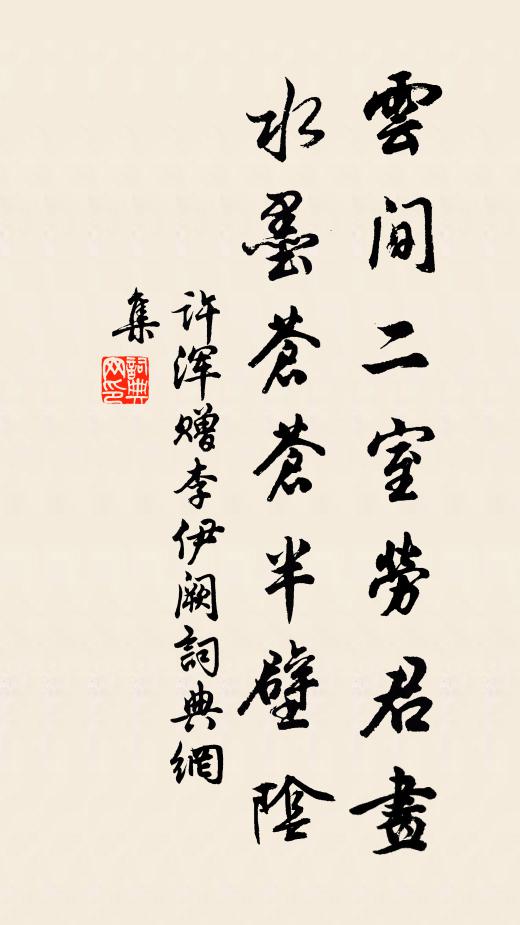 雲間二室勞君畫
水墨蒼蒼半壁陰
許渾贈李伊闕詞典網
集
詞典
网印